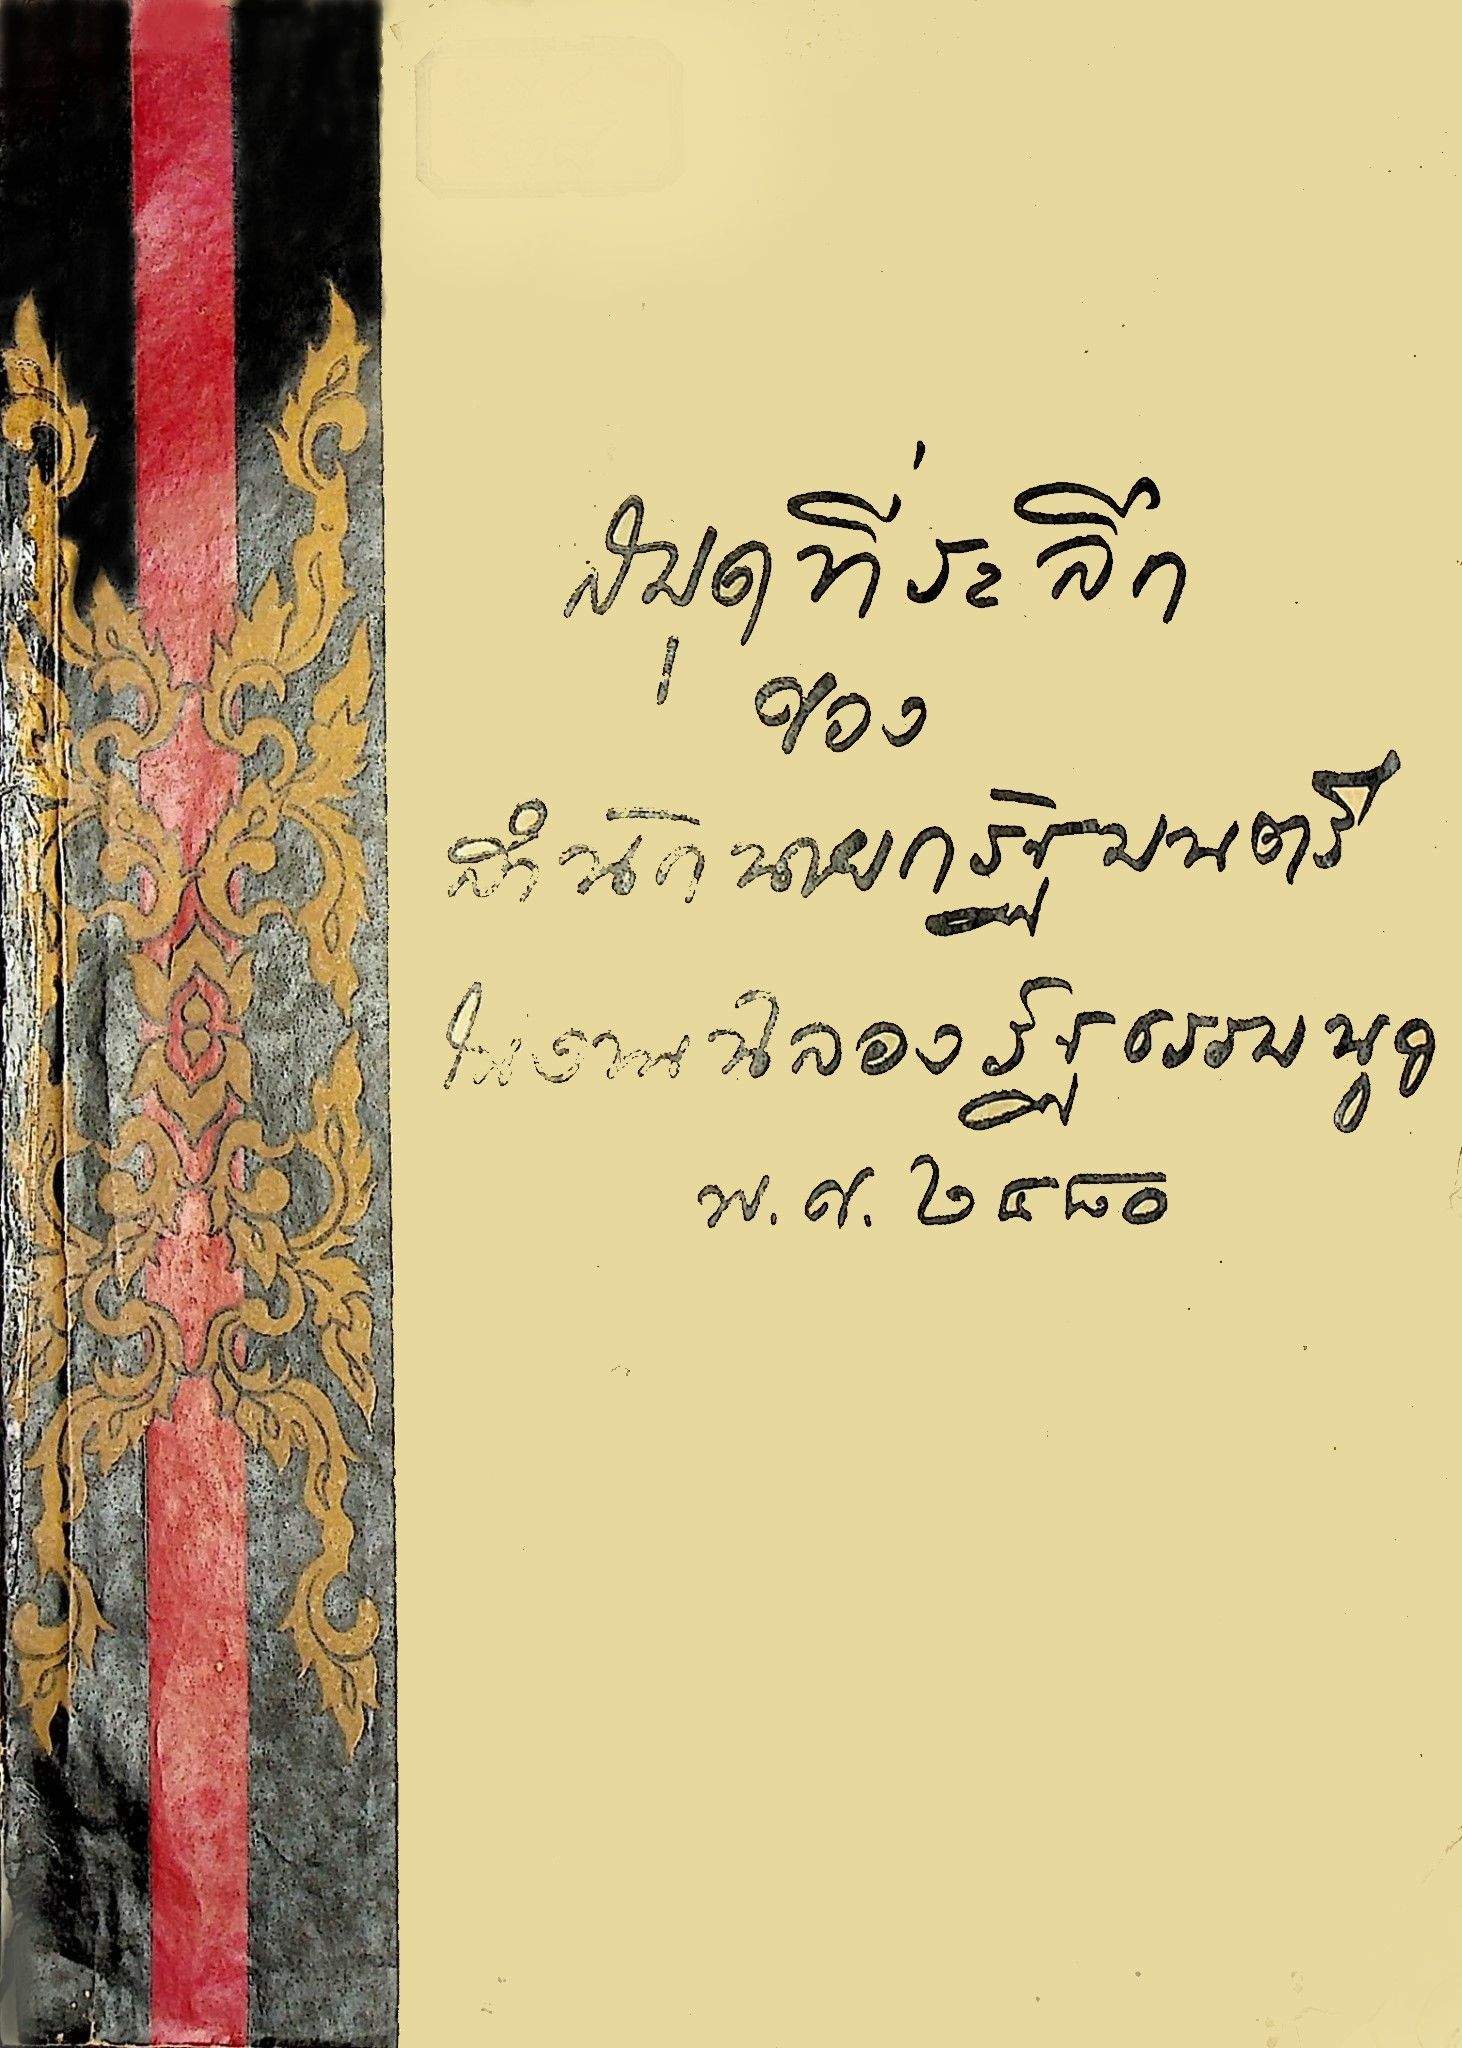 สมุดที่ระลึก
ของ
สำนักนายกรัฐมนตรี
ในงานฉลองรัฐธรรมนูญ
พ.ศ. ๒๔๘๐